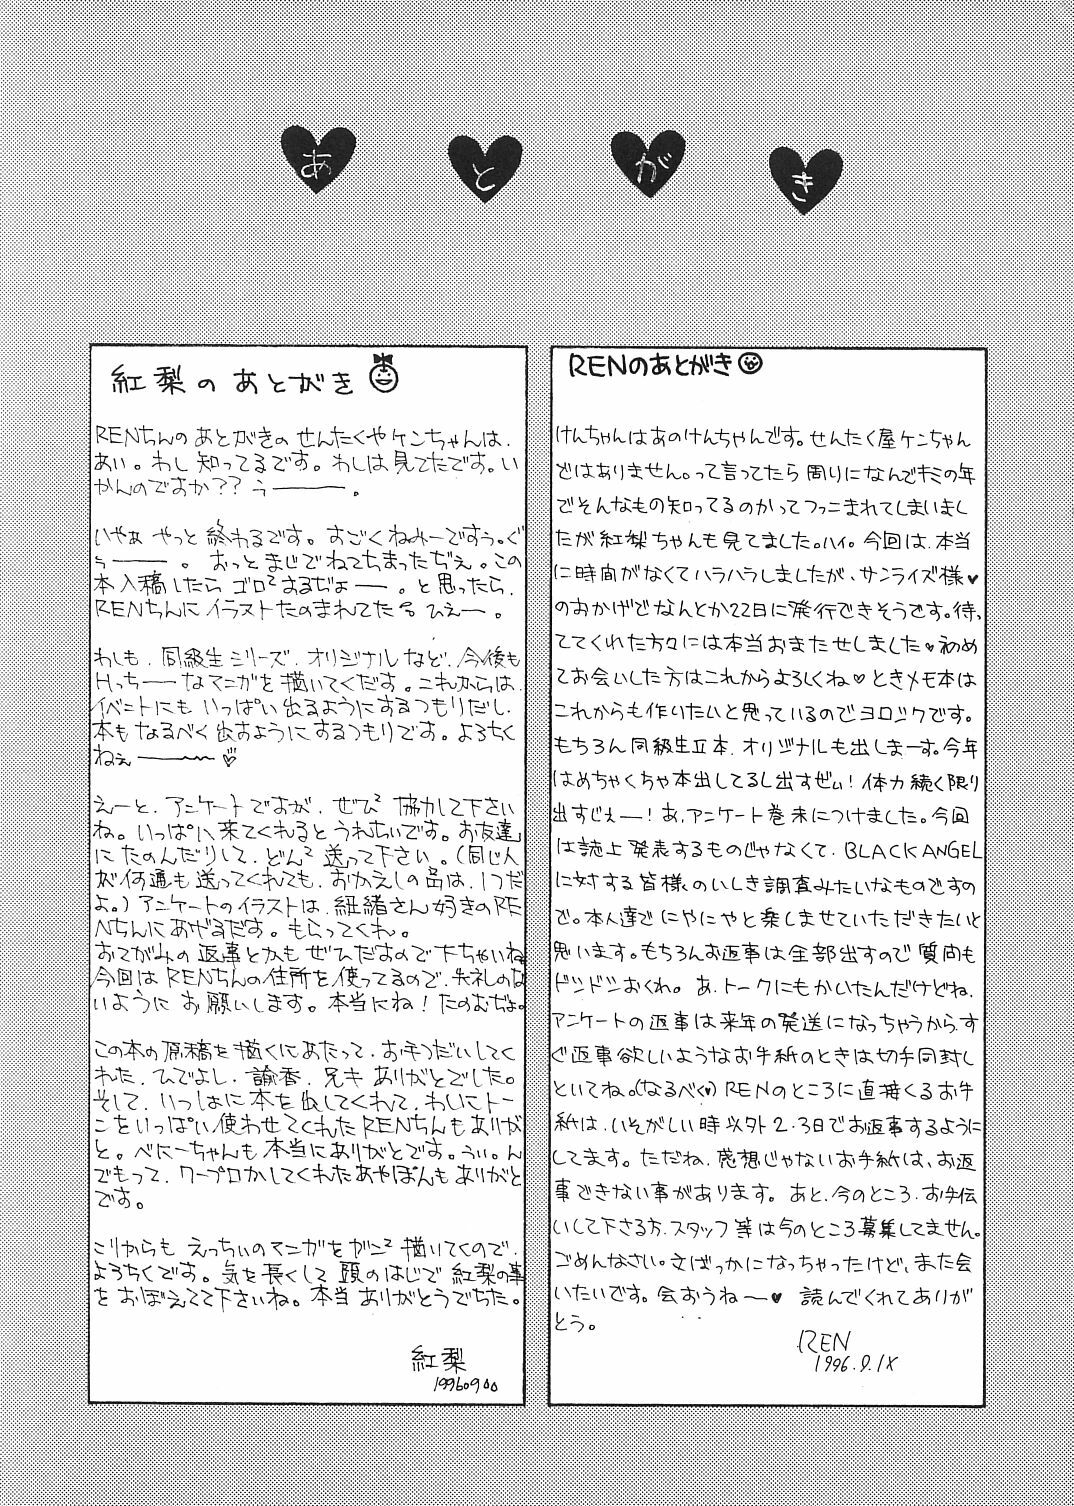 あとがき
紅梨のあとがき
RENちんのあとがきのせんたくやケンちゃんは、
あい。わし知ってるです。わしは見てたです。い
かんのですか??ぅーーー。
いやぁやっと終わるです。すごくねみーですぅ。ぐ
ぅーーー。おっとまじでねてちまったぢぇ。この
本入稿したらゴロ²するぢょーー。と思ったら、
RENちんにイラストたのまれてたるひえー。
わしも、同級生シリーズ、オリジナルなど、今後も
Hっちーーなマンガを描いてくだす。これからは、
イベントにもいっぱい出るようにするつもりだし、
本もなるべく出すようにするつもりです。よろちく
ねぇーーー♡
えーと、アンケートですが、ぜひ²協力して下さい
ね。いっぱい来てくれるとうれちいです。お友達
にたのんだりして、どん²送って下さい。(同じ人
が何通も送ってくれても、おかえしの品は、1つだ
よ。)アンケートのイラストは、紐緒さん好きのRE
Nちんにあげるだす。もらってくれ。
おてがみの返事とかもぜひだすので下ちゃいね
今回はRENちんの住所を使ってるので、失礼のな
いようにお願いします。本当にね!たのむぢょ。
この本の原稿を描くにあたって、お手つだいしてく
れた、ひでよし、諭香、兄キありがとでした。
そして、いっしょに本を出してくれて、わしにトー
ンをいっぱい使わせてくれたRENちんもありが
と。べにーちゃんも本当にありがとです。うぃ。ん
でもって、ワープロかしてくれたあやぽんもありがと
です。
これからもえっちぃのマンガをガン²描いてくので、
よろちくです。気を長くして頭のはじで紅梨の事
をおぼえてて下さいね。本当ありがとうでちた。
紅梨
199609
RENのあとがき
けんちゃんはあのけんちゃんです。せんたく屋ケンちゃん
ではありません。って言ってたら周りになんでキミの年
でそんなもの知ってるのかってツッこまれてしまいまし
たが紅梨ちゃんも見てました。ハイ。今回は、本当
に時間がなくてハラハラしましたが、サンライズ様♥
のおかげでなんとか22日に発行できそうです。待っ
ててくれた方々には本当おまたせしました♥初め
てお会いした方はこれからよろしくね♡ときメモ本は
これからも作りたいと思っているのでヨロシクです。
もちろん同級生Ⅱ本、オリジナルも出しまーす。今年
はめちゃくちゃ本出してるし出すぜぃ!体力続く限り
出すじぇー!あ、アンケート巻末につけました。今回
は誌上発表するものじゃなくて、BLACK ANGEL
に対する皆様のいしき調査みたいなものですの
で。本人達でにやにやと楽しませていただきたいと
思います。もちろんお返事は全部出すので質問も
ドシドシおくれ。あ、トークにもかいたんだけどね、
アンケートの返事は来年の発送になっちゃうから、す
ぐ返事欲しいようなお手紙のときは切手同封し
といてね。(なるべく♡)RENのところに直接くるお手
紙は、いそがしい時以外2、3日でお返事するように
してます。ただね、感想じゃないお手紙は、お返
事できない事があります。あと、今のところ、お手伝
いして下さる方、スタッフ等は今のところ募集してません。
ごめんなさい。文ばっかになっちゃったけど、また会
いたいです。会おうねー♥読んでくれてありが
とう。
REN
1996.9.1X